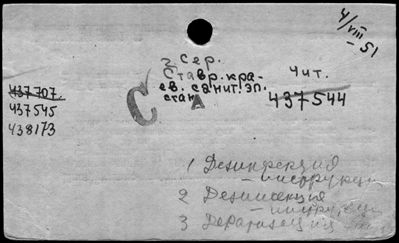 4/VIII-51
З Сер.
Ставр. кра-
ев. санит. эп.
стан
Чит.
437544
437707.
437545
438173
С
А
1 Дезинфекция
- инструкц
2 Дезинсекция
- инструкци
3 Дератизация